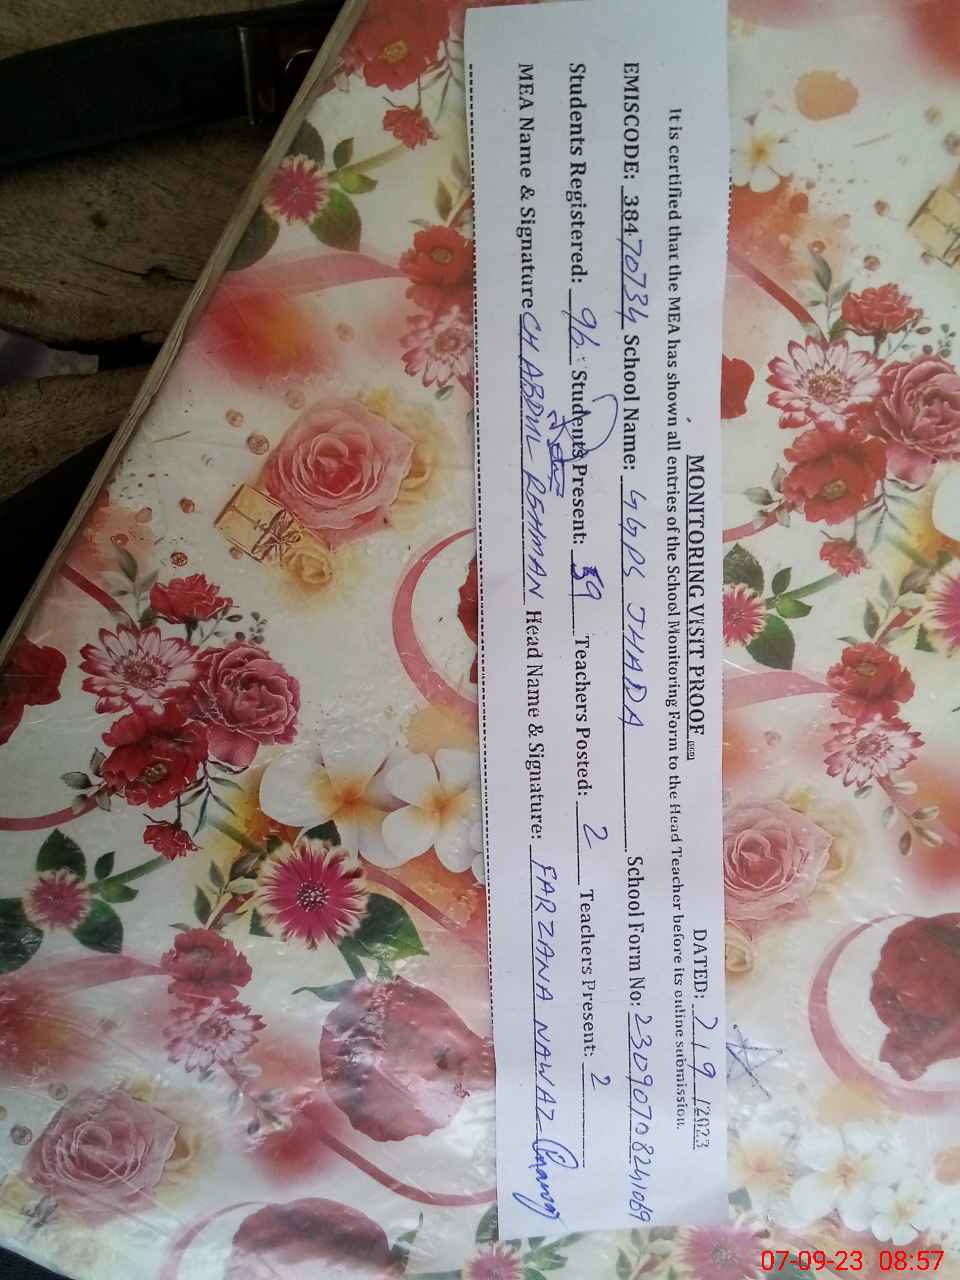 MONITORING VISIT PROOF DATED: 7/9/2023
It is certified that the MEA has shown all entries of the School Monitoring Form to the Head Teacher before its online submission.
EMISCODE: 38470734 School Name: GGPS JHADA School Form No:
Students Registered: 96 Students Present: 59 Teachers Posted: 2 Teachers Present: 2
MEA Name & Signature CH ABDUL REHMAN Head Name & Signature: FARZANA NAWAZ
07-09-23 08:57